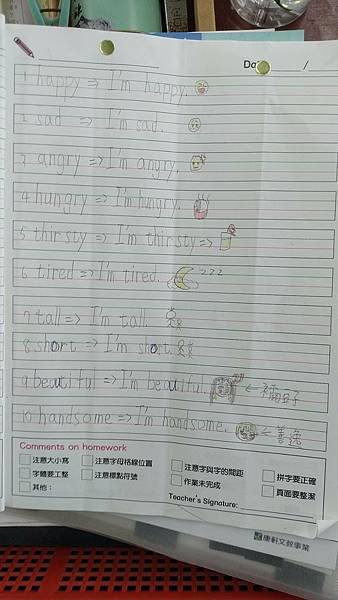 Da /
1 happy => I'm happy.
2 sad => I'm sad.
3 angry => I'm angry.
4 hungry => I'm hungry.
5 thirsty => I'm thirsty =>
6 tired => I'm tired. zzz
7 tall => I'm tall.
8 short => I'm short.
9 beautiful => I'm beautiful. ← 禰豆子
10 handsome => I'm handsome. ← 善逸
Comments on homework
注意大小寫 注意字母格線位置 注意字與字的間距 拼字要正確
字體要工整 注意標點符號 作業未完成 頁面要整潔
其他:
Teacher's Signature:
康軒文教事業